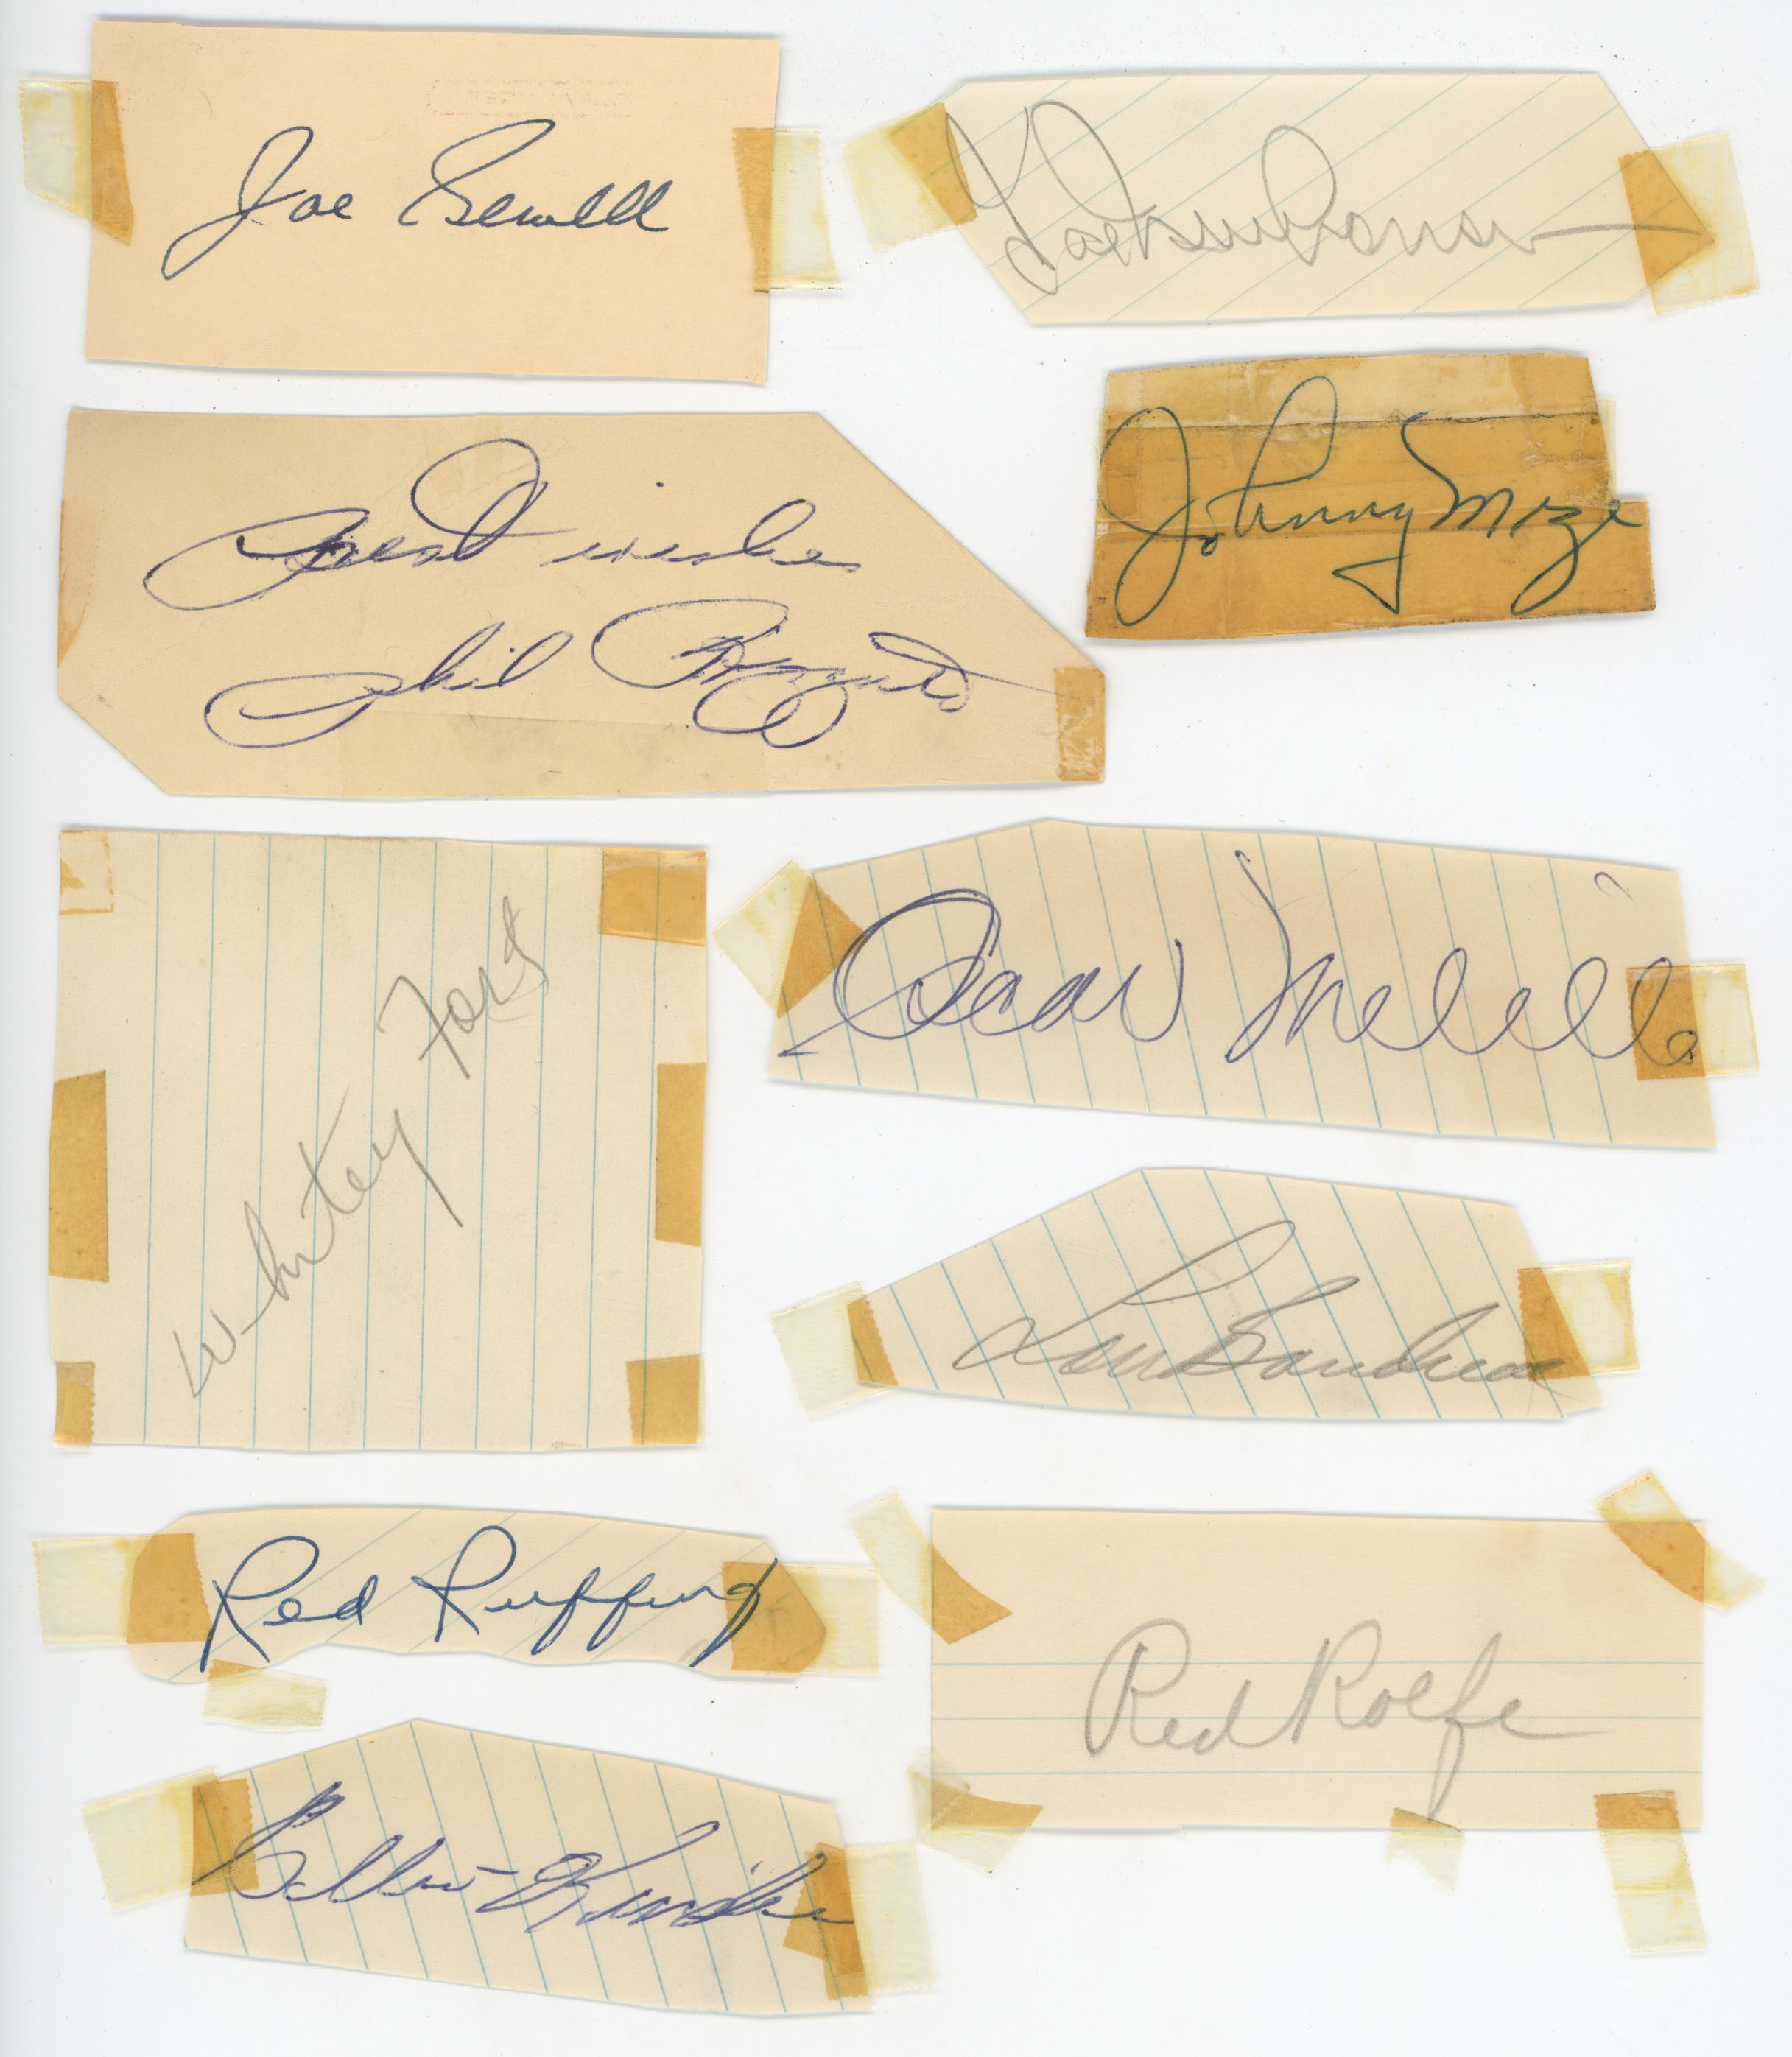 Joe Sewell
Johnny Mize
Best wishes
Phil Rizzuto
Oscar Melillo
Whitey Ford
Lou Boudreau
Red Ruffing
Red Rolfe
Ellis Kinder